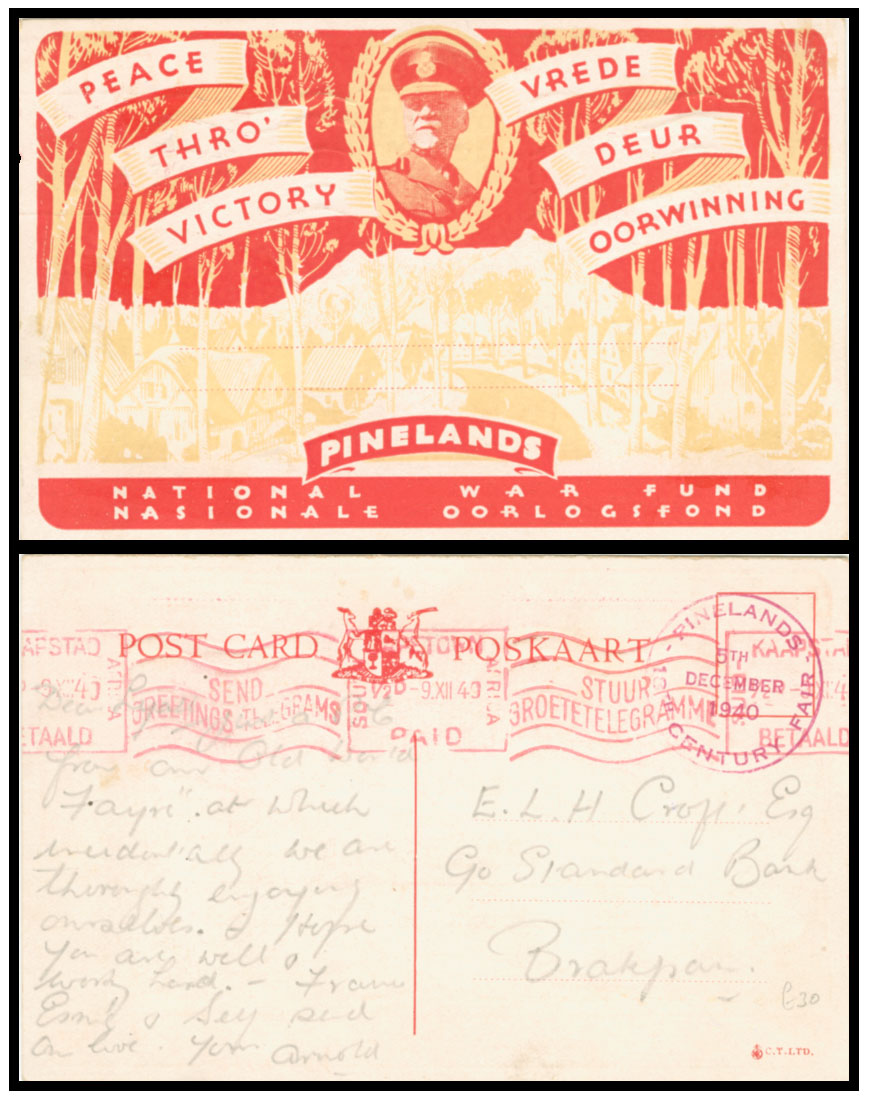 PEACE
THRO'
VICTORY
VREDE
DEUR
OORWINNING
PINELANDS
NATIONAL WAR FUND
NASIONALE OORLOGSFOND
POST CARD POSKAART
PINELANDS
5TH
DECEMBER
1940
CENTURY FAIR
KAAPSTAD
-9.XII.40
BETAALD
SEND
GREETINGS TELEGRAMS
½D -9.XII 40
PAID
STUUR
GROETETELEGRAMME
BETAALD
Dear
from our Old World
Fayre". at which
incidentally we are
thoroughly enjoying
ourselves. I Hope
you are well &
work hard. -
Esmé & Self send
our love. Yours Arnold
E. L. H Croft. Esq
c/o Standard Bank
Brakpan.
£30
C.T. LTD.